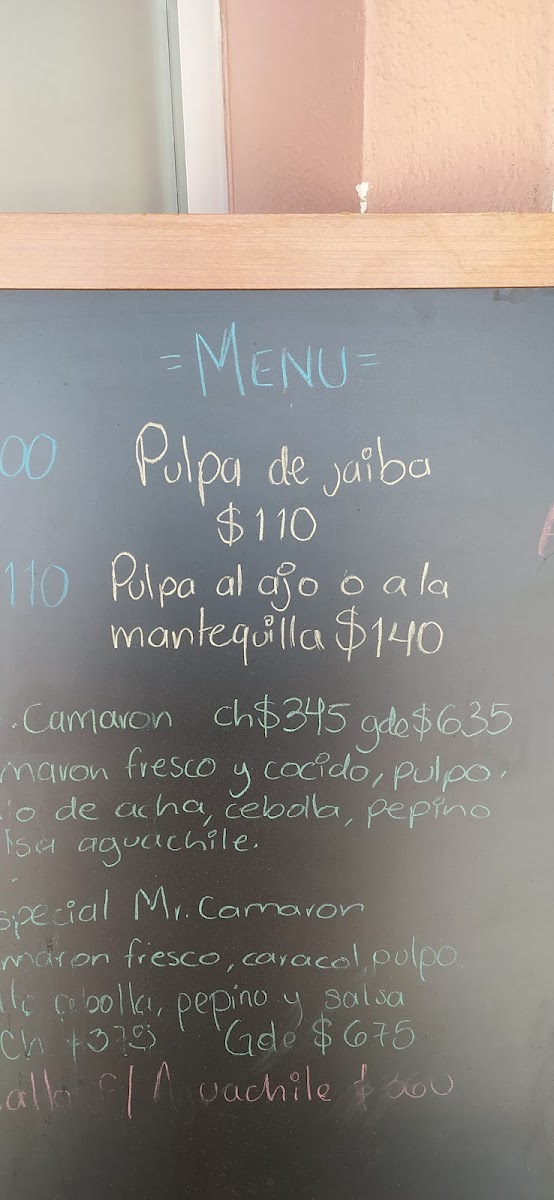 = MENU =
00 Pulpa de jaiba
$110
110 Pulpa al ajo o a la
mantequilla $140
. Camaron ch$345 gde$635
maron fresco y cocido, pulpo,
lo de acha, cebolla, pepino
lsa aguachile.
special Mr. Camaron
maron fresco, caracol, pulpo
cebolla, pepino y salsa
Ch Gde $675
Aguachile